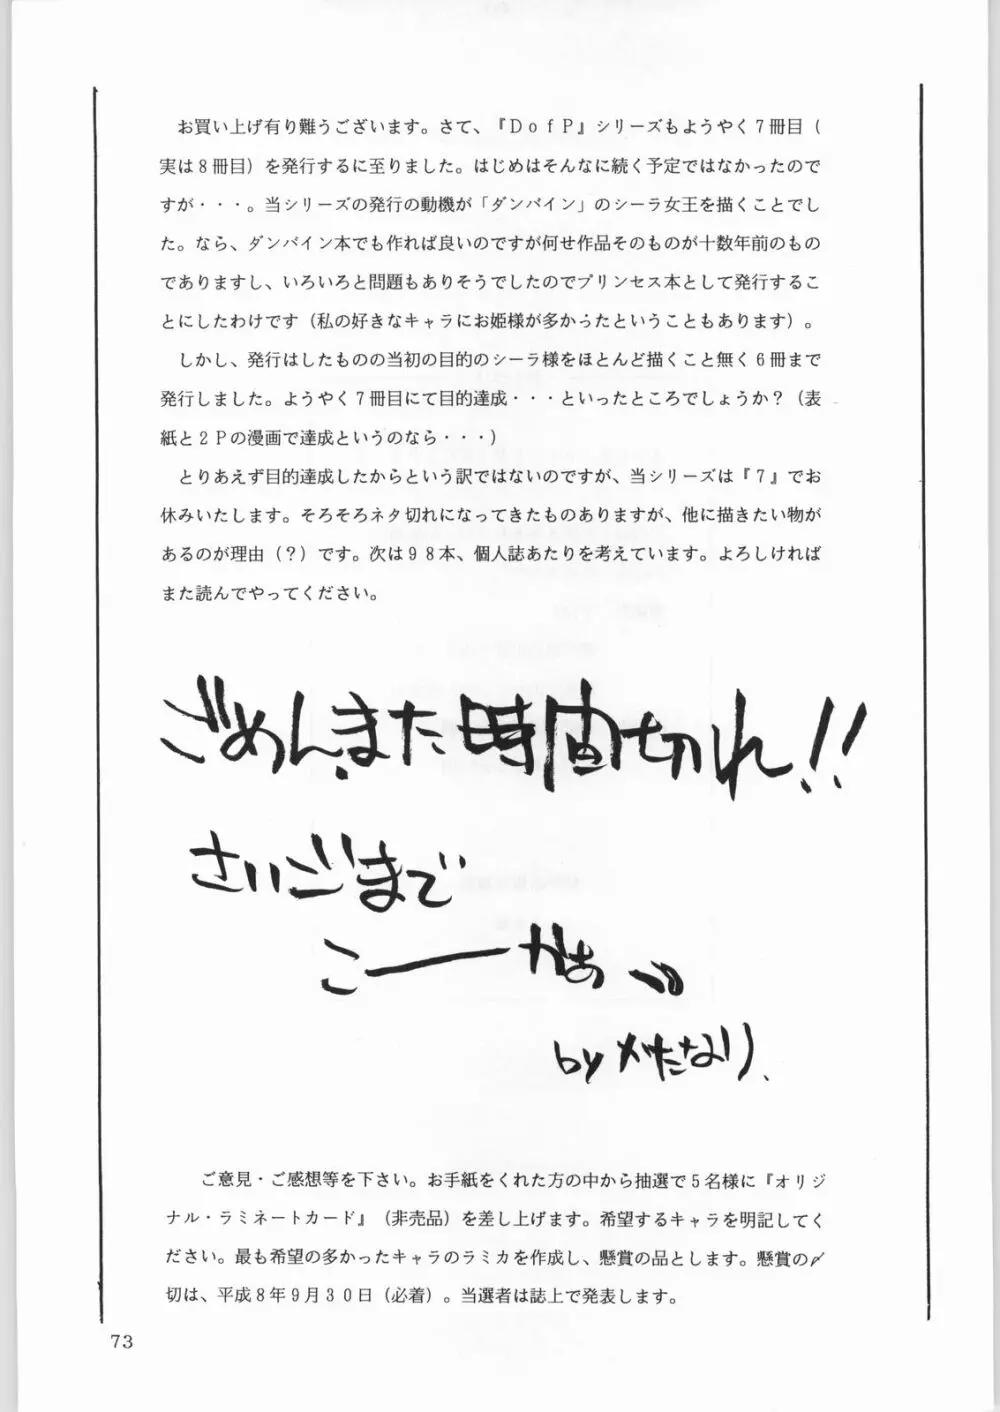 お買い上げ有り難うございます。さて、『ＤｏｆＰ』シリーズもようやく７冊目（
実は８冊目）を発行するに至りました。はじめはそんなに続く予定ではなかったので
すが・・・。当シリーズの発行の動機が「ダンバイン」のシーラ女王を描くことでし
た。なら、ダンバイン本でも作れば良いのですが何せ作品そのものが十数年前のもの
でありますし、いろいろと問題もありそうでしたのでプリンセス本として発行するこ
とにしたわけです（私の好きなキャラにお姫様が多かったということもあります）。
しかし、発行はしたものの当初の目的のシーラ様をほとんど描くこと無く６冊まで
発行しました。ようやく７冊目にて目的達成・・・といったところでしょうか？（表
紙と２Ｐの漫画で達成というのなら・・・）
とりあえず目的達成したからという訳ではないのですが、当シリーズは『７』でお
休みいたします。そろそろネタ切れになってきたものありますが、他に描きたい物が
あるのが理由（？）です。次は９８本、個人誌あたりを考えています。よろしければ
また読んでやってください。
ごめん、また時間切れ！！
さいごまで
こーーかぁ
by かたなり、
ご意見・ご感想等を下さい。お手紙をくれた方の中から抽選で５名様に『オリジ
ナル・ラミネートカード』（非売品）を差し上げます。希望するキャラを明記してく
ださい。最も希望の多かったキャラのラミカを作成し、懸賞の品とします。懸賞の〆
切は、平成８年９月３０日（必着）。当選者は誌上で発表します。
73